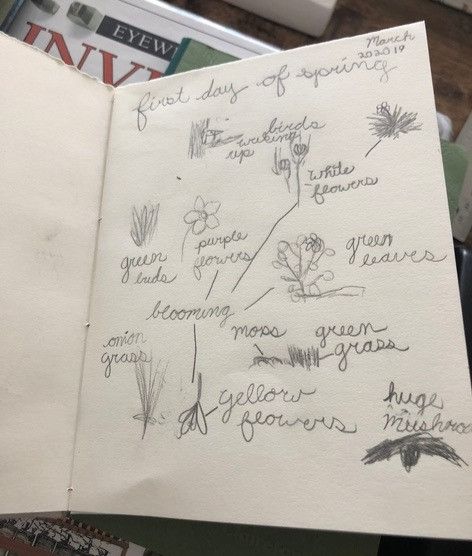 EYEW
INV
March
202019
first day of spring
birds
waking
up
white
flowers
green
buds
purple
flowers
green
leaves
blooming
onion
grass
moss
green
grass
yellow
flowers
huge
mushroo